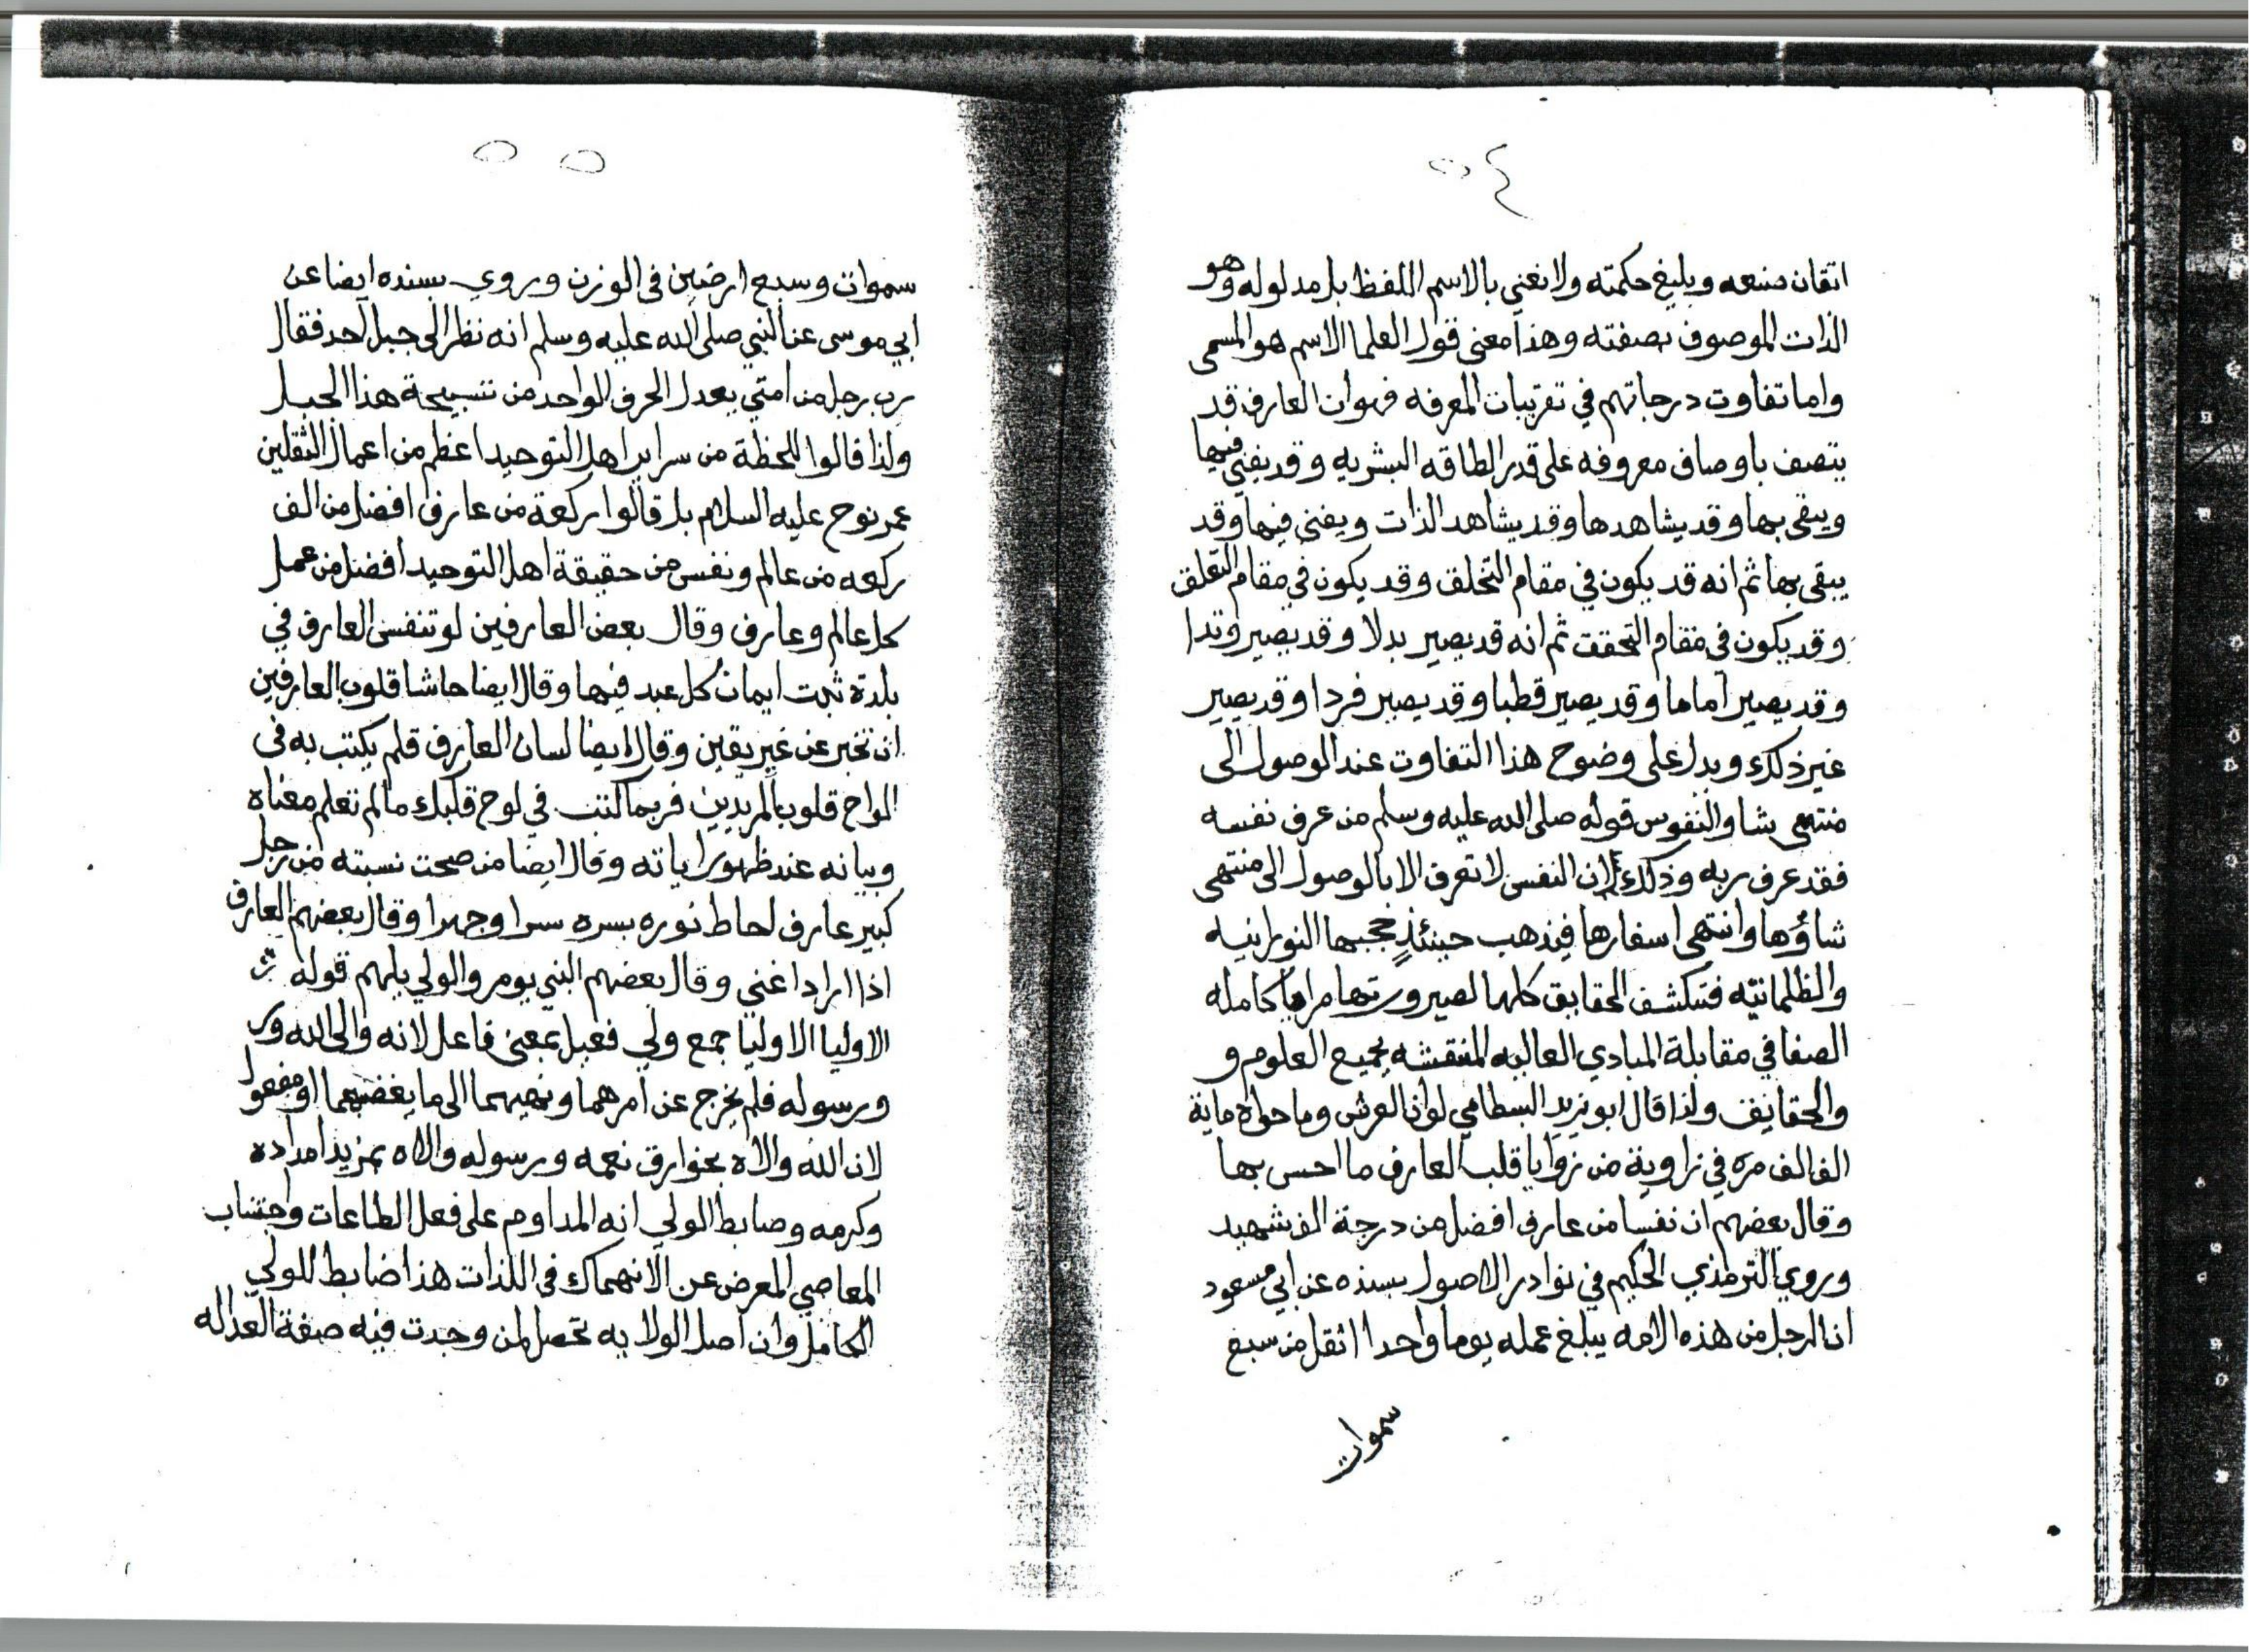 ٥٤
اتقان صنعه وبليغ حكمته ولا نعني بالاسم اللفظ بل مدلوله وهو
الذات الموصوف بصفته وهذا معنى قول العلما الاسم هو المسمى
واما تفاوت درجاتهم في تقريبات المعرفه فهو ان العارف قد
يتصف باوصاف معروفه على قدر الطاقه البشريه وقد يفنى فيها
ويبقى بها وقد يشاهدها وقد يشاهد الذات ويفنى فيها وقد
يبقى بها ثم انه قد يكون في مقام التخلق وقد يكون في مقام التعلق
وقد يكون في مقام التحقق ثم انه قد يصير بدلا وقد يصير وتدا
وقد يصير اماما وقد يصير قطبا وقد يصير فردا وقد يصير
غير ذلك ويدل على وضوح هذا التفاوت عند الوصول الى
منتهى شاو النفوس قوله صلى الله عليه وسلم من عرف نفسه
فقد عرف ربه وذلك لان النفس لا تعرف الا بالوصول الى منتهى
شاؤها وانتهى اسفارها فيذهب حينئذٍ حجبها النورانيه
والظلمانيه فتنكشف الحقايق كلها لصيرورتها مرايا كامله
الصفا في مقابلة المبادي العاليه المنتقشه بجميع العلوم و
والحقايق ولذا قال ابو يزيد البسطامي لو ان العرش وما حواه ماية
الف الف مره في زاوية من زوايا قلب العارف ما احس بها
وقال بعضهم ان نفسا من عارف افضل من درجة الف شهيد
وروي الترمذي الحكيم في نوادر الاصول بسنده عن ابي مسعود
ان الرجل من هذه الامه يبلغ عمله يوما واحدا اثقل من سبع
سموات
٥٥
سموات وسبع ارضين في الوزن وروي بسنده ايضا عن
ابي موسى عن النبي صلى الله عليه وسلم انه نظر الى جبل احد فقال
رب رجل من امتي يعدل الحرف الواحد من تسبيحة هذا الجبل
ولذا قالوا للحظة من سراير اهل التوحيد اعظم من اعمال الثقلين
عمر نوح عليه السلام بل قالوا ركعة من عارف افضل من الف
ركعه من عالم ونفس من حقيقة اهل التوحيد افضل من عمل
كل عالم وعارف وقال بعض العارفين لو تنفس العارف في
بلدة ثبت ايمان كل عبد فيها وقال ايضا حاشا قلوب العارفين
ان تخبر عن غير يقين وقال ايضا لسان العارف قلم يكتب به في
الواح قلوب المريدين فربما كتب في لوح قلبك ما لم تعلم معناه
وبيانه عند ظهور اياته وقال ايضا من صحت نسبته من رجل
كبير عارف لحاط نوره بسره سرا وجهرا وقال بعضهم العارف
اذا اراد اغني وقال بعضهم النبي يومر والولي يلهم قوله
الاوليا الاوليا جمع ولي فعيل بمعنى فاعل لانه والى الله ور
ورسوله فلم يخرج عن امرهما ونهيهما الى ما يغضبهما او مفعول
لان الله والاه بخوارق نعمه ورسوله والاه بمزيد امداده
وكرمه وضابط الولي انه المداوم على فعل الطاعات واجتناب
المعاصي المعرض عن الانهماك في اللذات هذا ضابط للولي
الكامل وان اصل الولايه تحصل لمن وجدت فيه صفة العداله